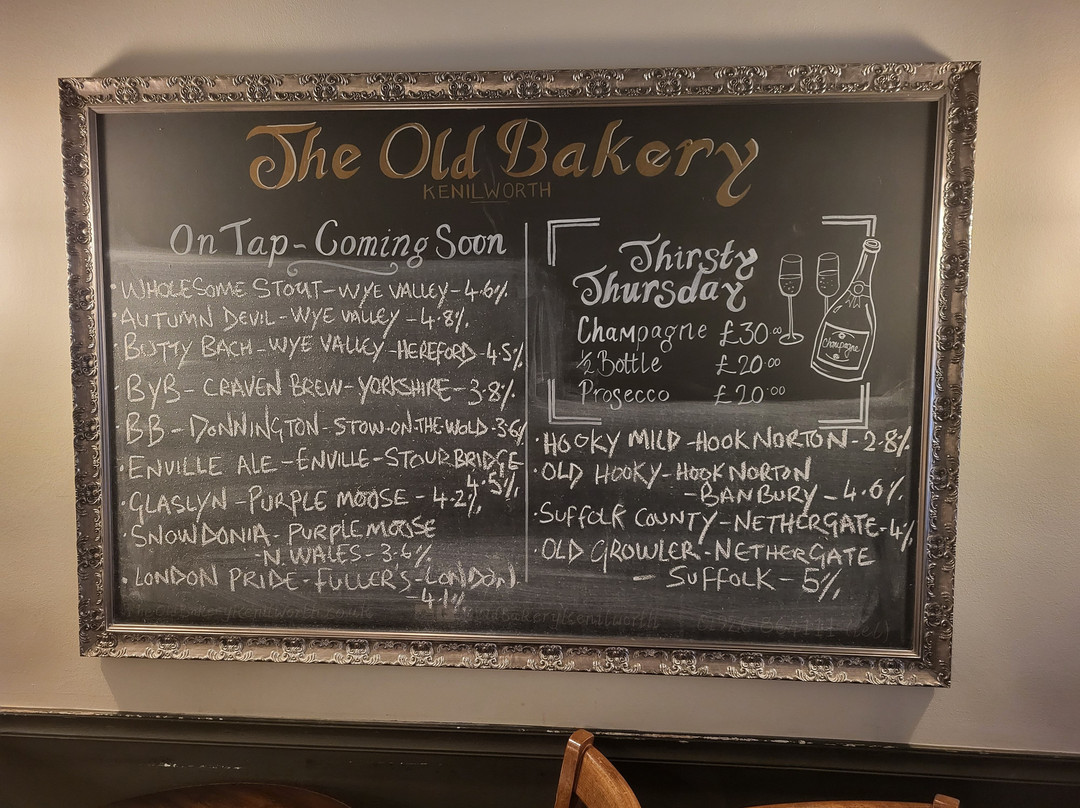 The Old Bakery
KENILWORTH
On Tap - Coming Soon
· WHOLESOME STOUT - WYE VALLEY - 4.6%
· AUTUMN DEVIL - WYE VALLEY - 4.8%
· BUTTY BACH - WYE VALLEY - HEREFORD - 4.5%
· BYB - CRAVEN BREW - YORKSHIRE - 3.8%
· BB - DONNINGTON - STOW-ON-THE-WOLD - 3.6%
· ENVILLE ALE - ENVILLE - STOURBRIDGE -
4.5%
· GLASLYN - PURPLE MOOSE - 4.2%
· SNOWDONIA - PURPLE MOOSE
- N. WALES - 3.6%
· LONDON PRIDE - FULLER'S - LONDON
- 4.1%
Thirsty
Thursday
Champagne £30.00
½ Bottle £20.00
Prosecco £20.00
Champagne
· HOOKY MILD - HOOK NORTON - 2.8%
· OLD HOOKY - HOOK NORTON
- BANBURY - 4.6%
· SUFFOLK COUNTY - NETHERGATE - 4%
· OLD GROWLER - NETHERGATE
- SUFFOLK - 5%